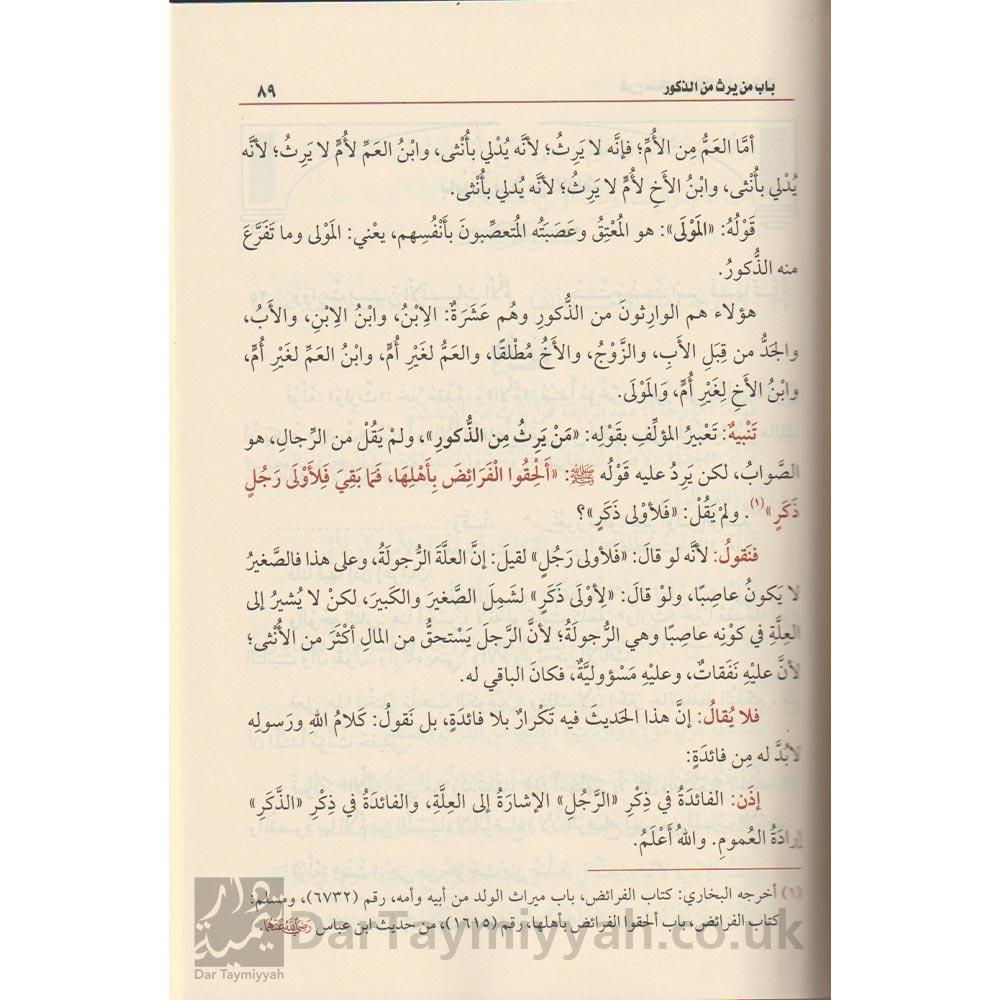 باب من يرث من الذكور ٨٩
أمَّا العَمُّ مِن الأُمِّ؛ فإنَّه لا يَرِثُ؛ لأنَّه يُدْلي بأُنْثى، وابْنُ العَمِّ لأُمٍّ لا يَرِثُ؛ لأنَّه
يُدْلي بأُنْثى، وابْنُ الأَخِ لأُمٍّ لا يَرِثُ؛ لأنَّه يُدلي بأُنْثى.
قَوْلُهُ: «المَوْلَى»: هو المُعْتِقُ وعَصَبَتُه المُتعصِّبونَ بأَنْفُسِهم، يعْني: المَوْلى وما تَفَرَّعَ
منه الذُّكورُ.
هؤلاء هم الوارِثونَ من الذُّكورِ وهُم عَشَرَةٌ: الاِبْنُ، وابْنُ الاِبْنِ، والأَبُ،
والجَدُّ من قِبَلِ الأَبِ، والزَّوْجُ، والأَخُ مُطْلقًا، والعَمُّ لغَيْرِ أُمٍّ، وابْنُ العَمِّ لغَيْرِ أُمٍّ،
وابْنُ الأَخِ لِغَيْرِ أُمٍّ، وَالمَوْلَى.
تَنْبيهٌ: تَعْبيرُ المؤلِّفِ بقَوْلِه: «مَنْ يَرِثُ مِن الذُّكورِ»، ولمْ يَقُلْ من الرِّجالِ، هو
الصَّوابُ، لكن يَرِدُ عليه قَوْلُه ﷺ: «أَلْحِقُوا الْفَرَائِضَ بِأَهْلِهَا، فَمَا بَقِيَ فَلِأَوْلَى رَجُلٍ
ذَكَرٍ»(١). ولمْ يَقُلْ: «فَلأوْلى ذَكَرٍ»؟
فنَقولُ: لأنَّه لو قالَ: «فَلأولى رَجُلٍ» لقيلَ: إنَّ العلَّةَ الرُّجولَةُ، وعلى هذا فالصَّغيرُ
لا يَكونُ عاصِبًا، ولوْ قالَ: «لِأوْلَى ذَكَرٍ» لشَمِلَ الصَّغيرَ والكَبيرَ، لكنْ لا يُشيرُ إلى
العِلَّةِ في كوْنِه عاصِبًا وهي الرُّجولَةُ؛ لأنَّ الرَّجلَ يَسْتحقُّ من المالِ أكْثَرَ من الأُنْثى؛
لأنَّ عليْهِ نَفَقاتٌ، وعليْهِ مَسْؤوليَّةٌ، فكانَ الباقي له.
فلا يُقالُ: إنَّ هذا الحَديثَ فيه تَكْرارٌ بلا فائدَةٍ، بل نَقولُ: كَلامُ اللهِ ورَسولِه
لابُدَّ له مِن فائدَةٍ:
إذَن: الفائدَةُ في ذِكْرِ «الرَّجُلِ» الإشارَةُ إلى العِلَّةِ، والفائدَةُ في ذِكْرِ «الذَّكَرِ»
إرادَةُ العُمومِ. واللهُ أَعْلَمُ.
(١) أخرجه البخاري: كتاب الفرائض، باب ميراث الولد من أبيه وأمه، رقم (٦٧٣٢)، ومسلم:
كتاب الفرائض، باب ألحقوا الفرائض بأهلها، رقم (١٦١٥)، من حديث ابن عباس رضي الله عنهما.
DarTaymiyyah.co.uk
دار تيمية
Dar Taymiyyah